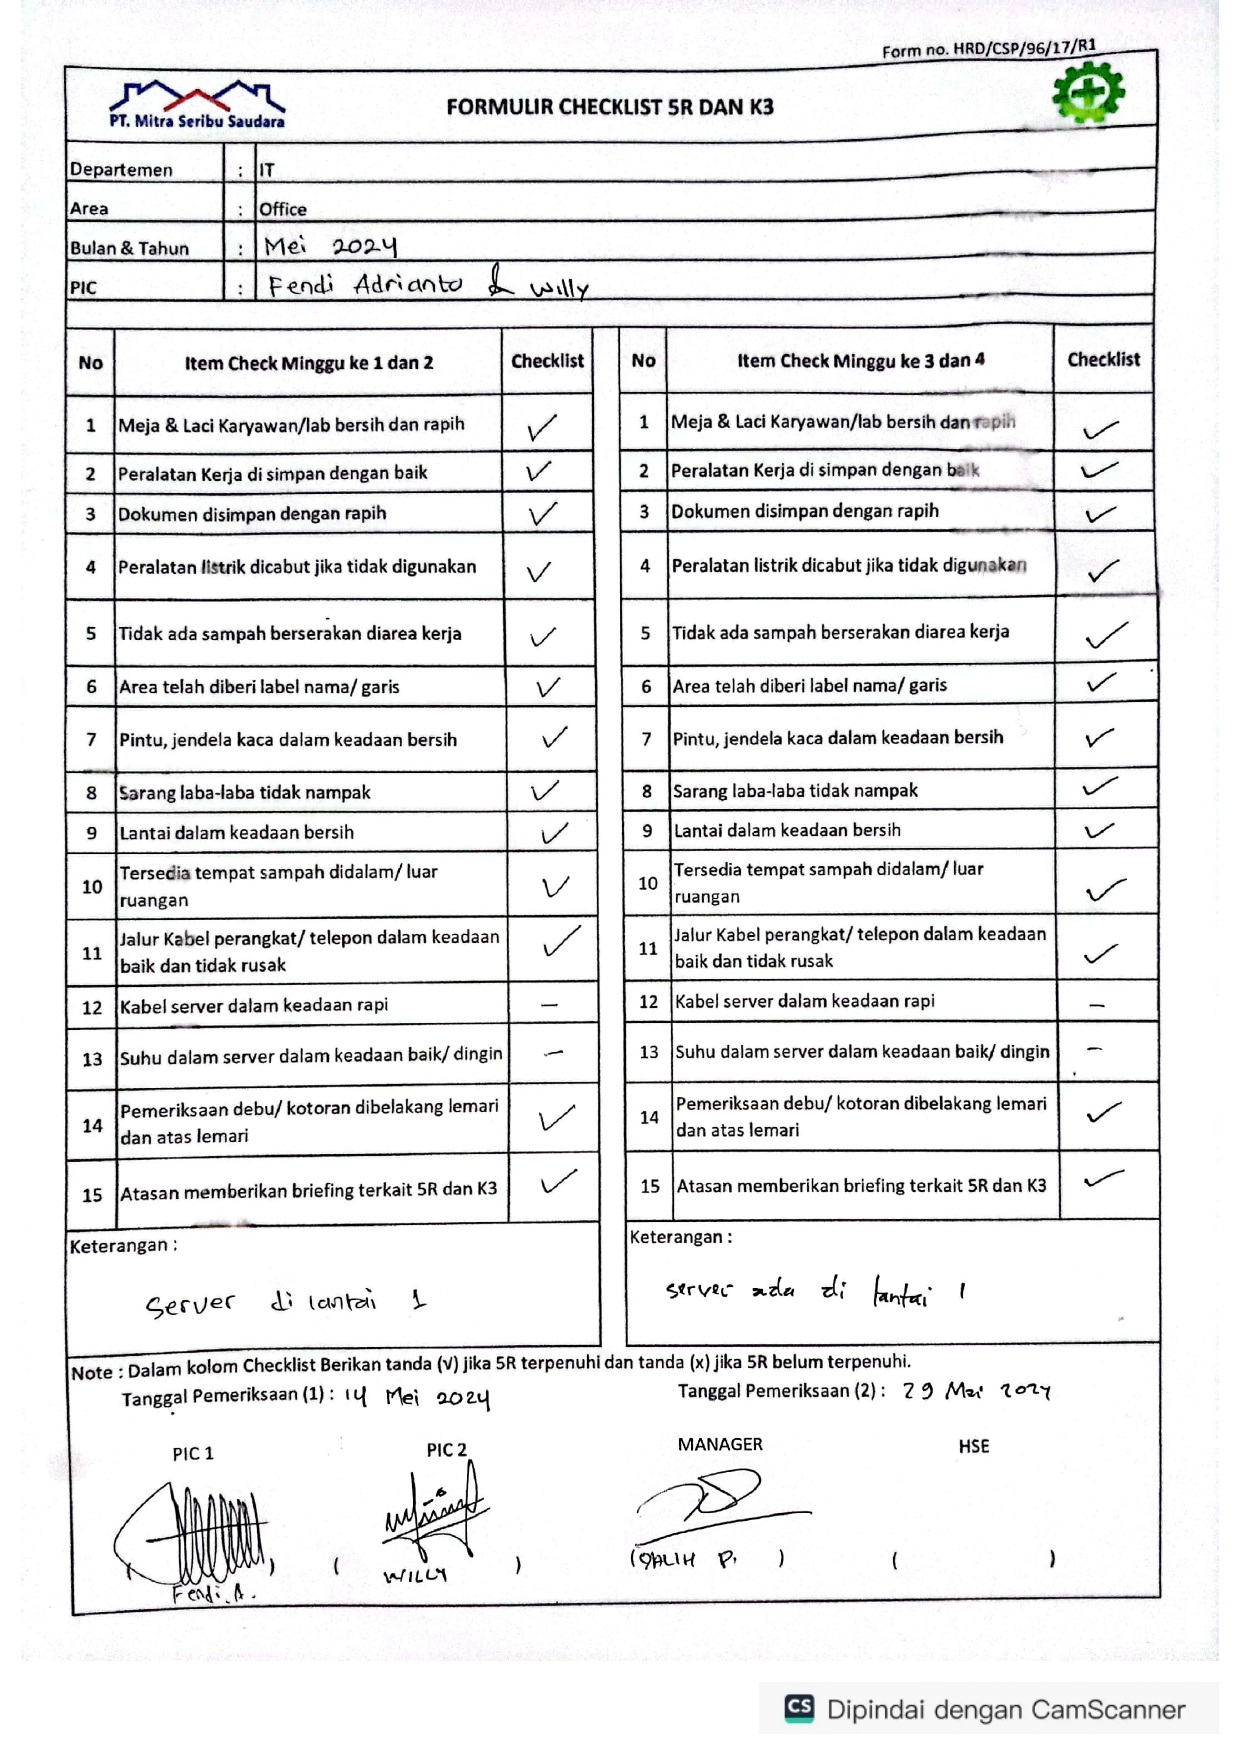 Form no. HRD/CSP/96/17/R1
PT. Mitra Seribu Saudara
FORMULIR CHECKLIST 5R DAN K3
Departemen : IT
Area : Office
Bulan & Tahun : Mei 2024
PIC : Fendi Adrianto & Willy
No Item Check Minggu ke 1 dan 2 Checklist
1 Meja & Laci Karyawan/lab bersih dan rapih ✓
2 Peralatan Kerja di simpan dengan baik ✓
3 Dokumen disimpan dengan rapih ✓
4 Peralatan listrik dicabut jika tidak digunakan ✓
5 Tidak ada sampah berserakan diarea kerja ✓
6 Area telah diberi label nama/ garis ✓
7 Pintu, jendela kaca dalam keadaan bersih ✓
8 Sarang laba-laba tidak nampak ✓
9 Lantai dalam keadaan bersih ✓
10 Tersedia tempat sampah didalam/ luar
ruangan ✓
11 Jalur Kabel perangkat/ telepon dalam keadaan
baik dan tidak rusak ✓
12 Kabel server dalam keadaan rapi –
13 Suhu dalam server dalam keadaan baik/ dingin –
14 Pemeriksaan debu/ kotoran dibelakang lemari
dan atas lemari ✓
15 Atasan memberikan briefing terkait 5R dan K3 ✓
Keterangan :
Server di lantai 1
No Item Check Minggu ke 3 dan 4 Checklist
1 Meja & Laci Karyawan/lab bersih dan rapih ✓
2 Peralatan Kerja di simpan dengan baik ✓
3 Dokumen disimpan dengan rapih ✓
4 Peralatan listrik dicabut jika tidak digunakan ✓
5 Tidak ada sampah berserakan diarea kerja ✓
6 Area telah diberi label nama/ garis ✓
7 Pintu, jendela kaca dalam keadaan bersih ✓
8 Sarang laba-laba tidak nampak ✓
9 Lantai dalam keadaan bersih ✓
10 Tersedia tempat sampah didalam/ luar
ruangan ✓
11 Jalur Kabel perangkat/ telepon dalam keadaan
baik dan tidak rusak ✓
12 Kabel server dalam keadaan rapi –
13 Suhu dalam server dalam keadaan baik/ dingin –
14 Pemeriksaan debu/ kotoran dibelakang lemari
dan atas lemari ✓
15 Atasan memberikan briefing terkait 5R dan K3 ✓
Keterangan :
server ada di lantai 1
Note : Dalam kolom Checklist Berikan tanda (√) jika 5R terpenuhi dan tanda (x) jika 5R belum terpenuhi.
Tanggal Pemeriksaan (1) : 14 Mei 2024 Tanggal Pemeriksaan (2) : 29 Mei 2024
PIC 1 PIC 2 MANAGER HSE
Fendi. A. ( WILLY ) (GALIH P. ) ( )
CS Dipindai dengan CamScanner